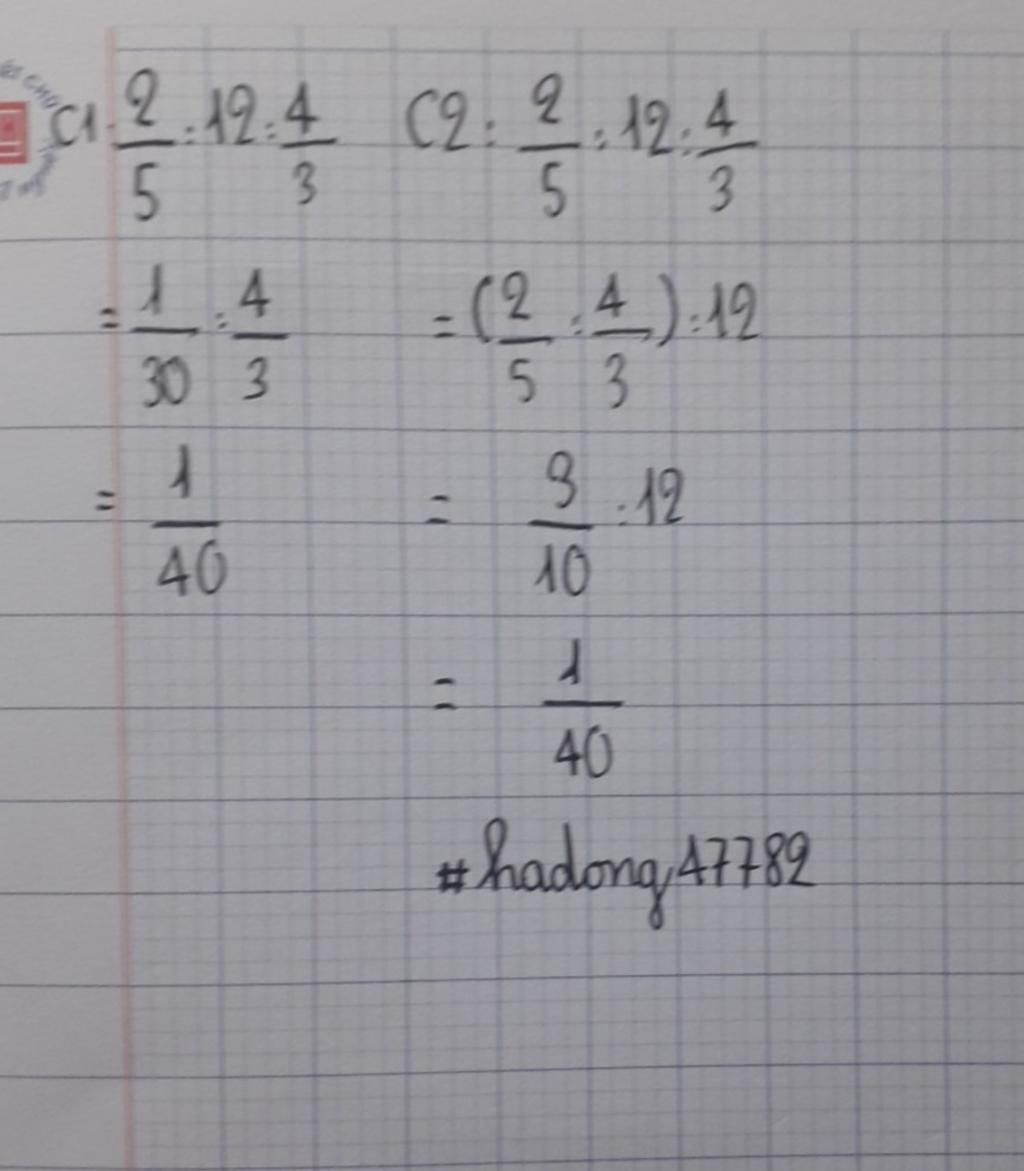 C1: 2/5 : 12 : 4/3
= 1/30 : 4/3
= 1/40
C2: 2/5 : 12 : 4/3
= (2/5 : 4/3) : 12
= 3/10 : 12
= 1/40
#hadong47782